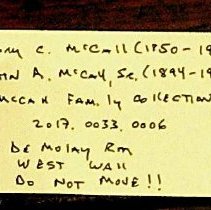 C. McCall (1850-19
A. McCall, Sr. (1894-19
McCall Family Collection
2017.0033.0006
DeMolay Rm
West Wall
Do Not Move!!